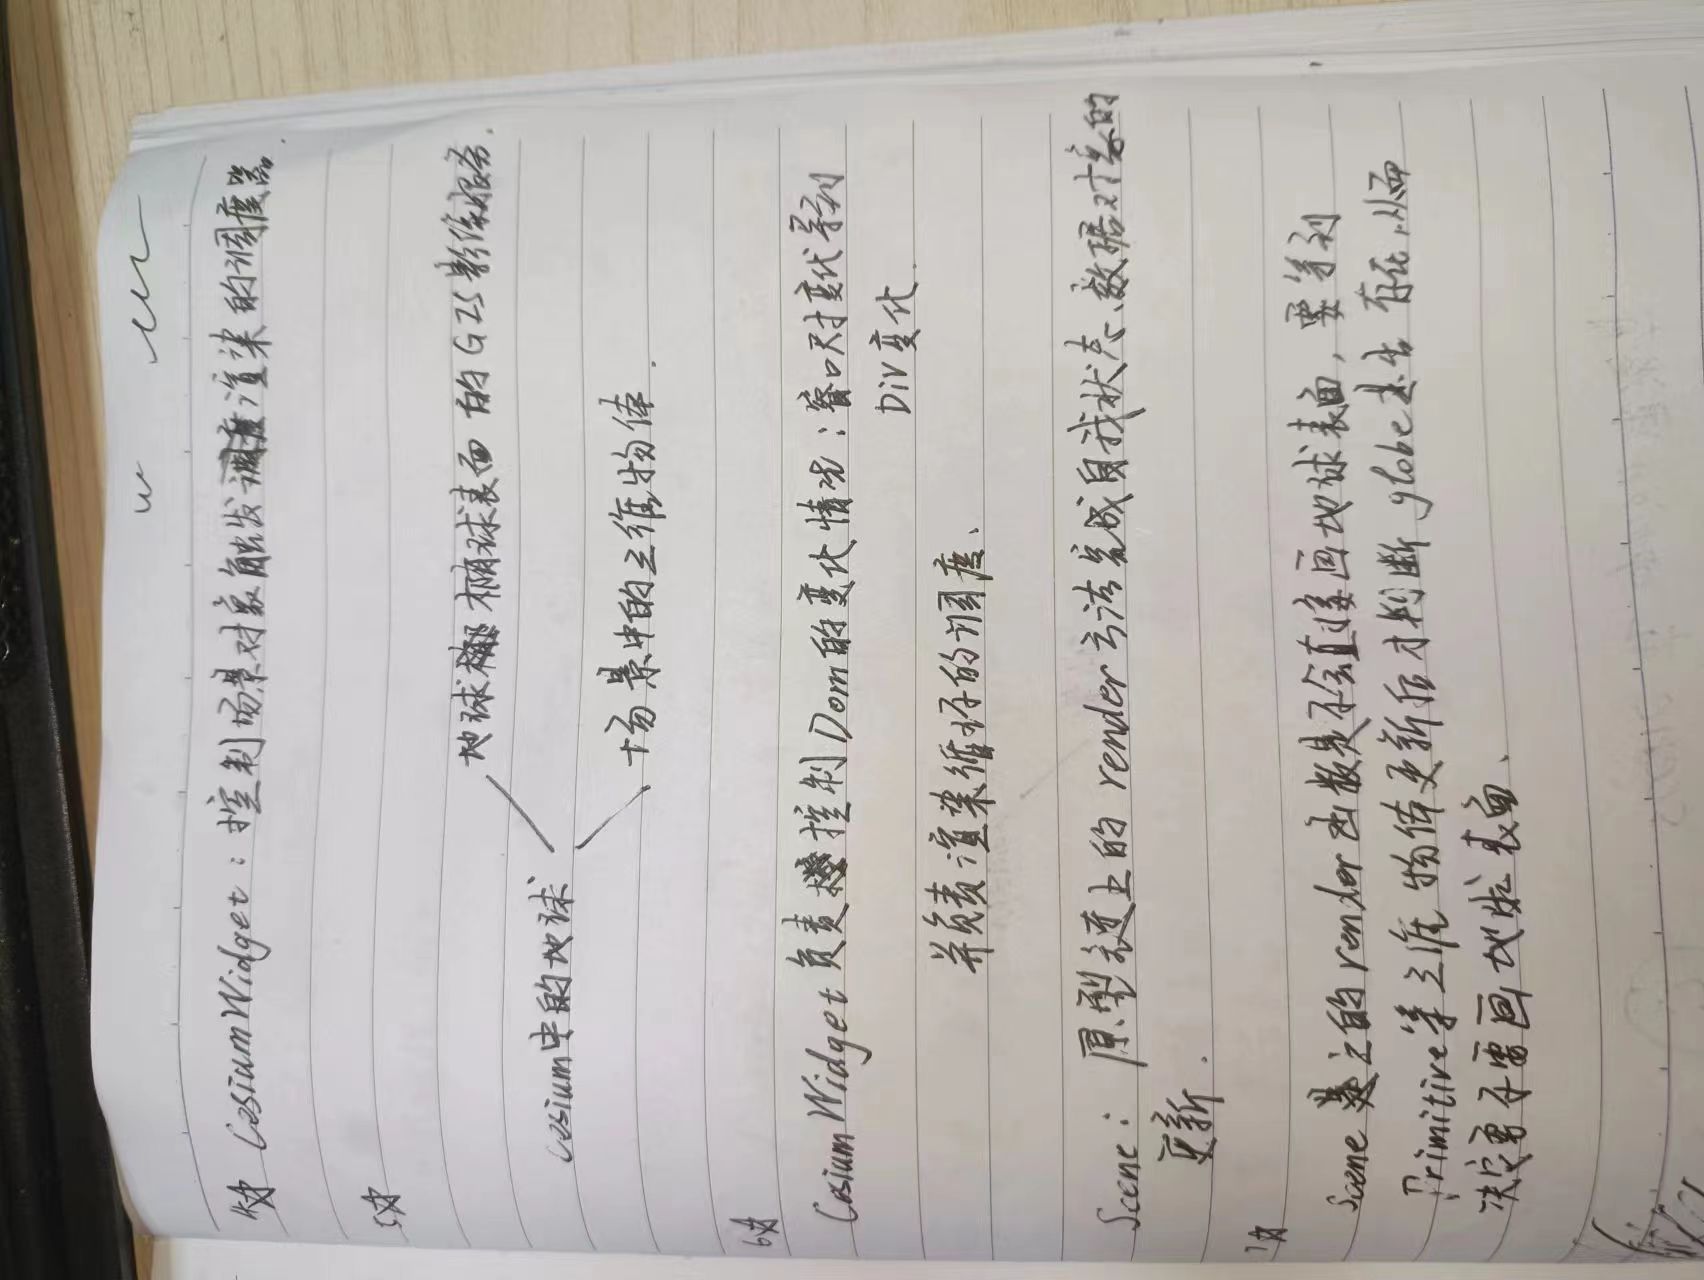 4☆ CesiumWidget：控制场景对象触发调度渲染的调度器.
5☆
地球椭球表面的GIS影像服务.
Cesium中的地球
场景中的三维物体.
6☆
CesiumWidget负责控制Dom的变化情况：窗口尺寸变化导致
Div变化.
并负责渲染循环的调度、
Scene：原型链上的render方法完成自我状态、数据对象的
更新.
7☆
Scene之的render函数是不会直接画地球表面，要等到
Primitive等三维物体更新后才判断globe是否存在，从而
决定需不需画地球表面、